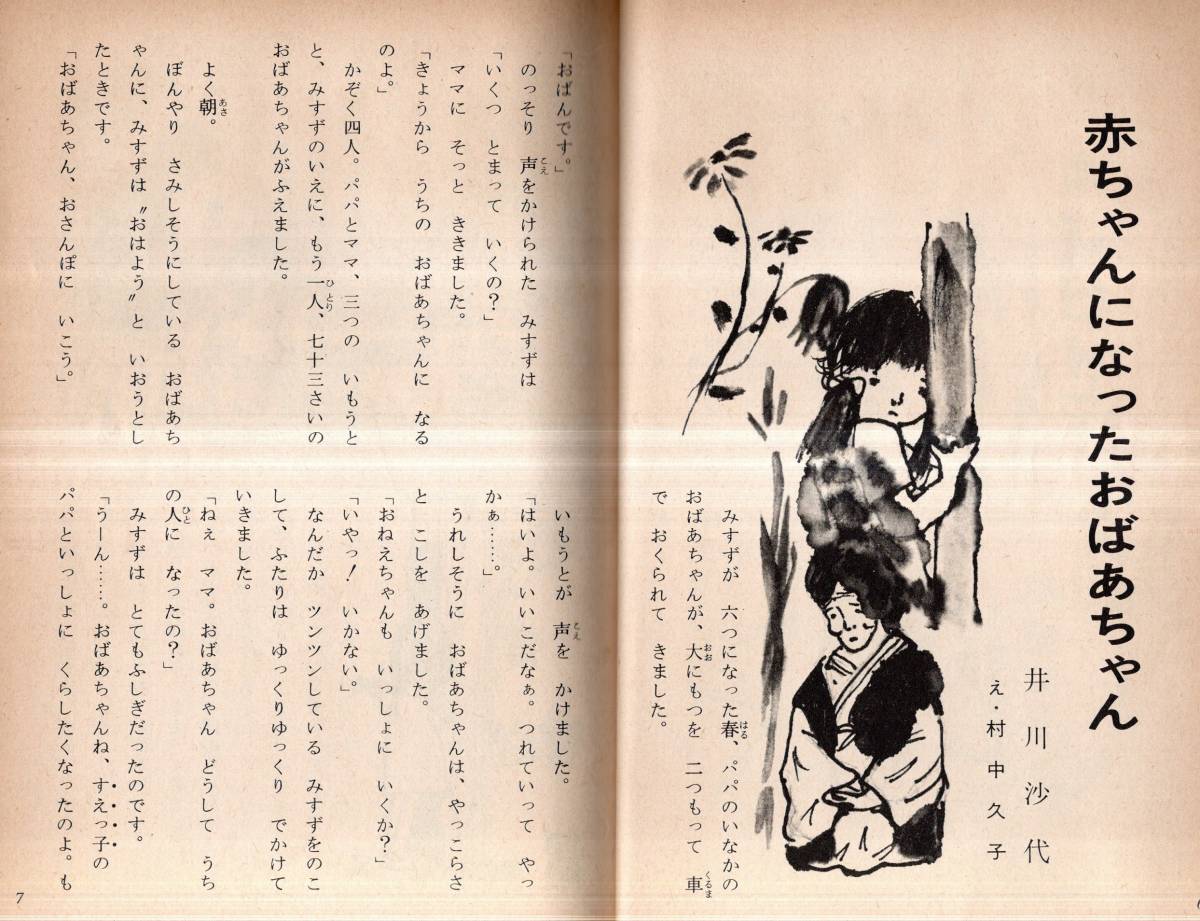 赤ちゃんになったおばあちゃん
井川沙代
え・村中久子
みすずが 六つになった春、パパのいなかの
おばあちゃんが、大にもつを 二つもって 車
で おくられて きました。
「おばんです。」
のっそり 声をかけられた みすずは
「いくつ とまって いくの?」
ママに そっと ききました。
「きょうから うちの おばあちゃんに なる
のよ。」
かぞく四人。パパとママ、三つの いもうと
と、みすずのいえに、もう一人、七十三さいの
おばあちゃんがふえました。
よく朝。
ぼんやり さみしそうにしている おばあち
ゃんに、みすずは〝おはよう〟と いおうとし
たときです。
「おばあちゃん、おさんぽに いこう。」
いもうとが 声を かけました。
「はいよ。いいこだなぁ。つれていって やっ
かぁ……。」
うれしそうに おばあちゃんは、やっこらさ
と こしを あげました。
「おねえちゃんも いっしょに いくか?」
「いやっ! いかない。」
なんだか ツンツンしている みすずをのこ
して、ふたりは ゆっくりゆっくり でかけて
いきました。
「ねぇ ママ。おばあちゃん どうして うち
の人に なったの?」
みすずは とてもふしぎだったのです。
「うーん……。おばあちゃんね、すえっ子の
パパといっしょに くらしたくなったのよ。も
7